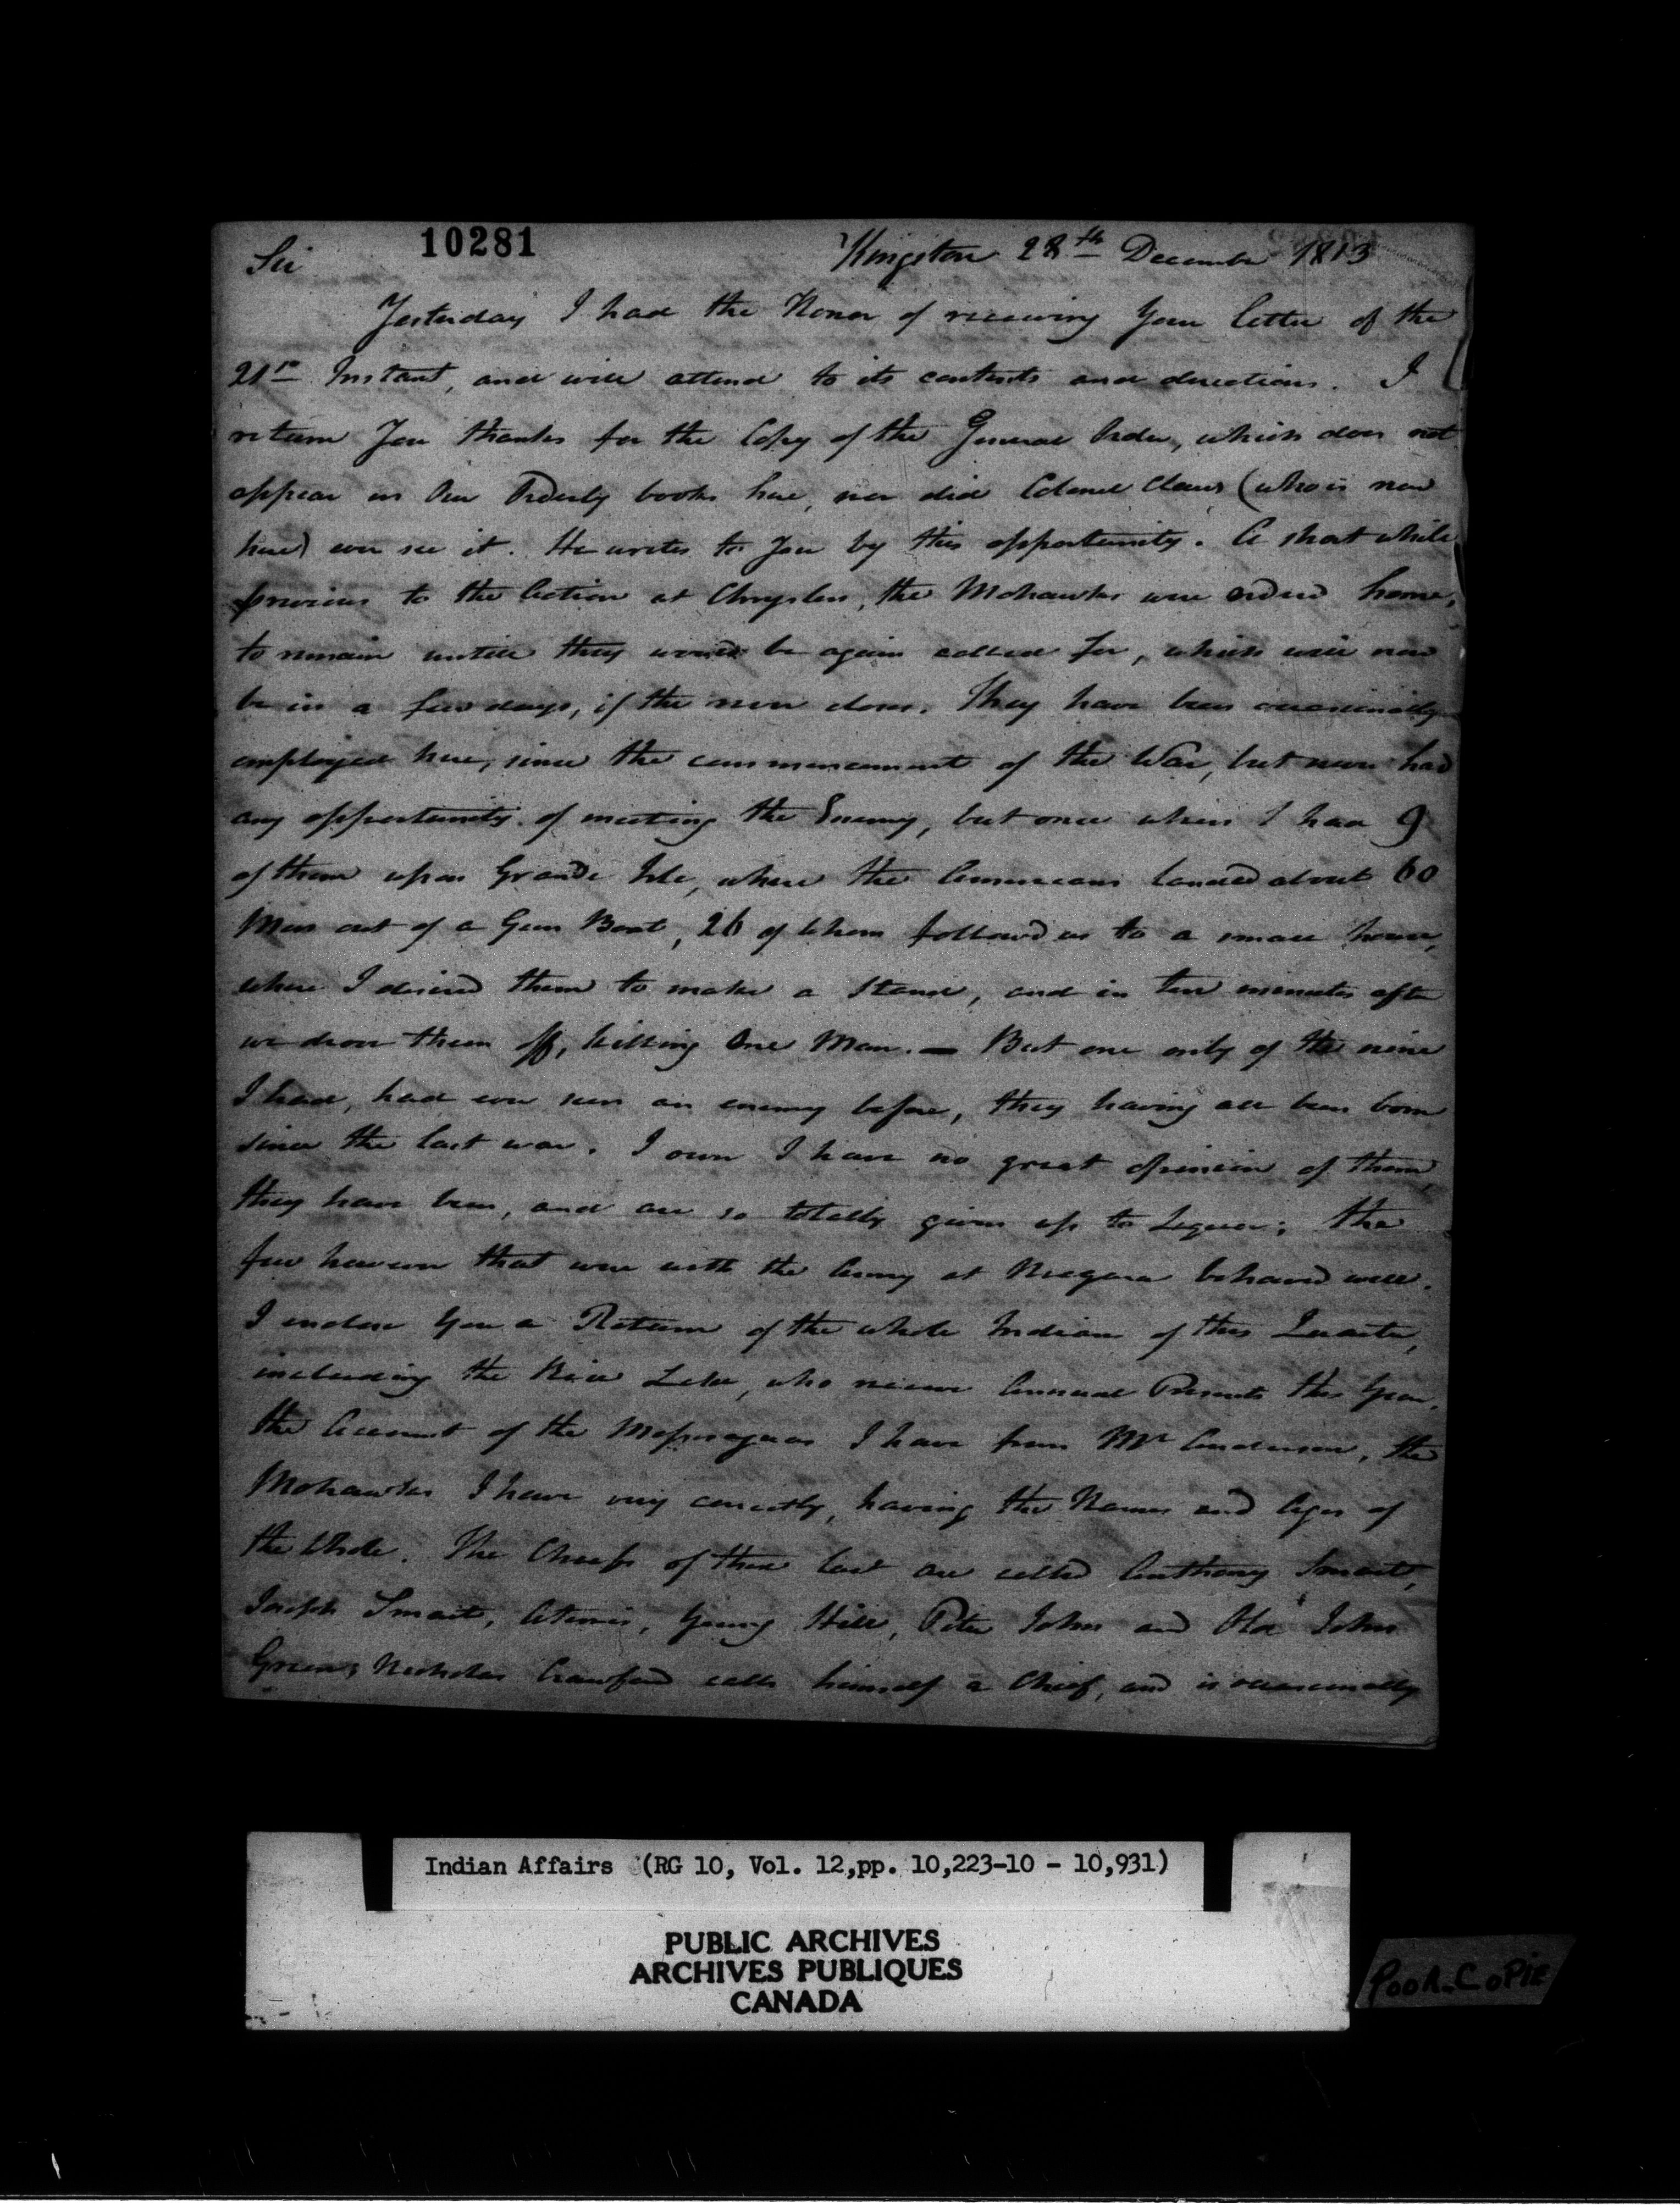 10281
Sir Kingston 28th December 1813
Yesterday I had the Honor of receiving Your letter of the
21st Instant, and will attend to its contents and directions. I
return You thanks for the Copy of the General Order, which does not
appear in Our Orderly books here, nor did Colonel Claus (who is now
here) ever see it. He writes to You by this opportunity. A short while
previous to the Action at Chryslers, the Mohawks were ordered home,
to remain untill they would be again called for, which will now
be in a few days, if the river closes. They have been occasionally
employed here, since the commencement of the War, but never had
any opportunity of meeting the Enemy, but once when I had 9
of them upon Grande Isle, where the Americans landed about 60
Men out of a Gun Boat, 26 of whom followed us to a small house,
where I desired them to make a stand, and in ten minutes after
we drove them off, killing One Man. — But one only of the nine
I had, had ever seen an enemy before, they having all been born
since the last war. I own I have no great opinion of them,
they have been, and are so totally given up to Liquor; the
few however that were with the Army at Niagara behaved well.
I enclose You a Return of the whole Indians of this Quarter,
including the Rice Lake, who receive Annual Presents this Year.
the Account of the Messisaguas I have from Mr Anderson, the
Mohawks I have very correctly, having the Names and Ages of
the whole. The Chiefs of these last are called Anthony Smart,
Joseph Smart, Young Hill, Peter John and Old John
Green; Nicholas Crawford calls himself a Chief, and is occasionally
Indian Affairs (RG 10, Vol. 12,pp. 10,223-10 - 10,931)
PUBLIC ARCHIVES
ARCHIVES PUBLIQUES
CANADA
POOR COPIE